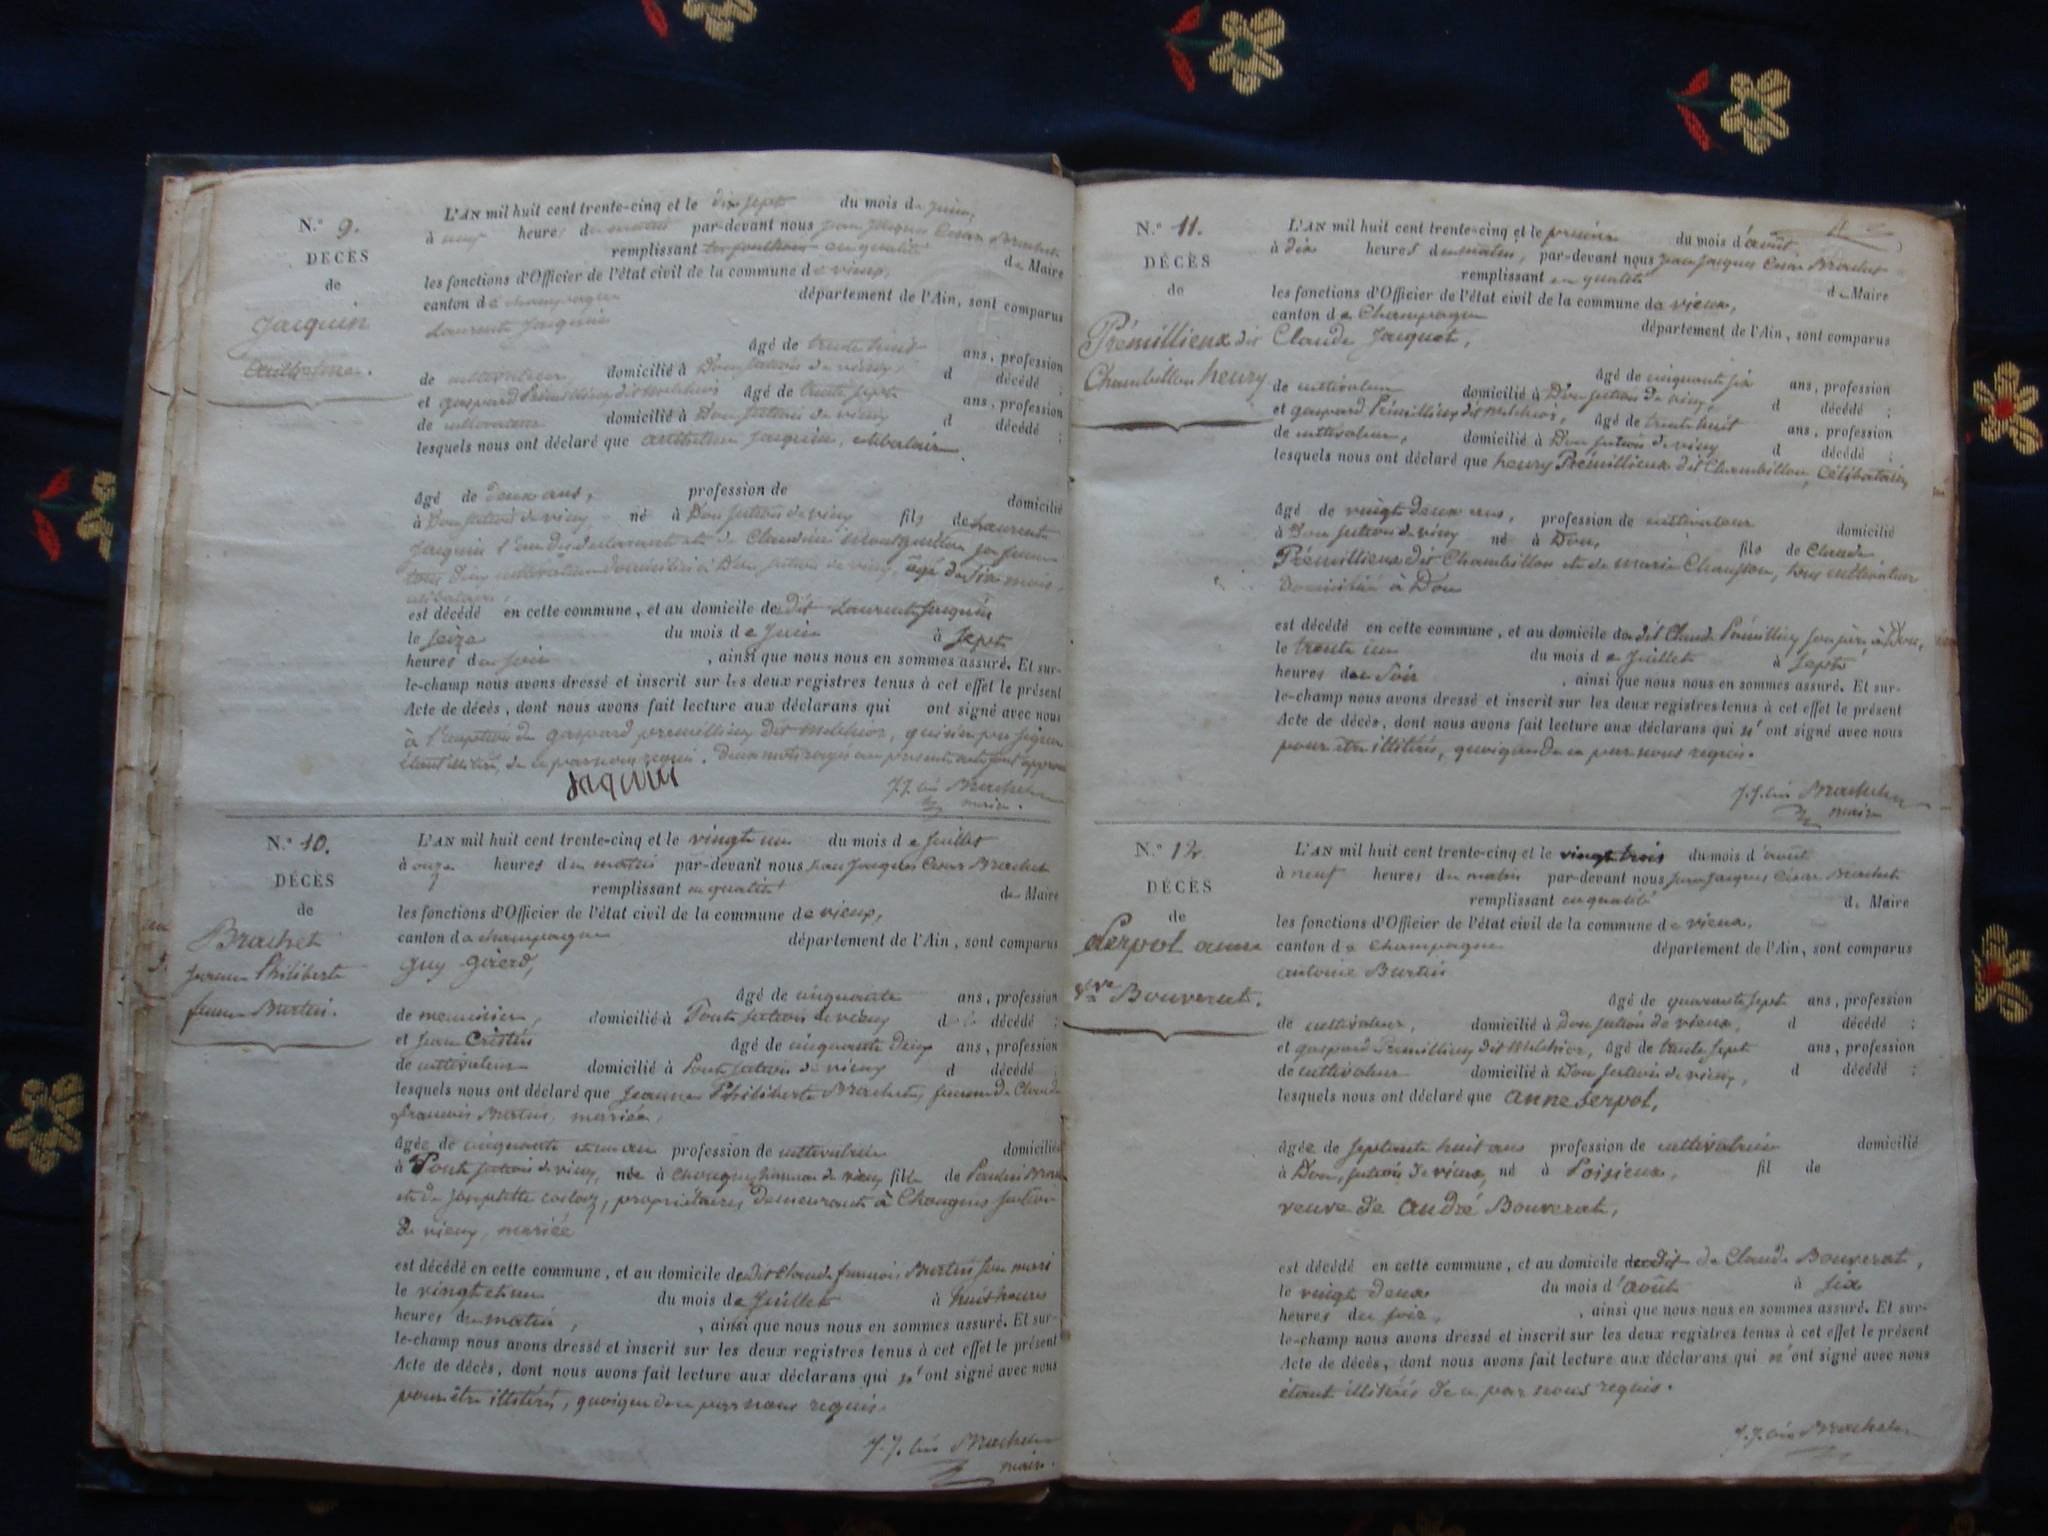 N.º 9.
DÉCÈS
de
Jacquin
L'AN mil huit cent trente-cinq et le dix sept du mois de juin,
à neuf heures du matin par-devant nous jean jacques Cesar Brachet
remplissant en qualité de Maire
les fonctions d'Officier de l'état civil de la commune de vieux,
canton de champagne département de l'Ain, sont comparus
Laurent Jacquin
âgé de trente huit ans, profession
de cultivateur domicilié à Don section de vieux, d décédé ;
et gaspard Prémillieux dit melchior âgé de trente sept ans, profession
de cultivateur domicilié à Don section de vieux d décédé ;
lesquels nous ont déclaré que jacquin, célibataire
âgé de deux ans, profession de domicilié
à Don section de vieux, né à Don section de vieux fils de Laurent
jacquin l'un des déclarants et de Claudine sa femme
tous deux cultivateurs domiciliés à Don section de vieux, âgé de six mois,
célibataire,
est décédé en cette commune, et au domicile de dit Laurent Jacquin
le seize du mois de Juin à sept
heures du soir , ainsi que nous nous en sommes assuré. Et sur-
le-champ nous avons dressé et inscrit sur les deux registres tenus à cet effet le présent
Acte de décès, dont nous avons fait lecture aux déclarans qui ont signé avec nous
à l'exception de gaspard premillieux dit melchior, qui n'a pu signer
étant illitéré, de ce par nous requis. Deux mots rayés au présent acte sont approuvés
Jaquin
J.J. Cés Brachet
maire.
N.º 10.
DÉCÈS
de
Brachet
jeanne Philiberte
femme Burtin.
L'AN mil huit cent trente-cinq et le vingt un du mois de juillet
à onze heures du matin par-devant nous jean jacques Cesar Brachet
remplissant en qualité de Maire
les fonctions d'Officier de l'état civil de la commune de vieux,
canton de champagne département de l'Ain, sont comparus
guy girerd,
âgé de cinquante ans, profession
de menuisier, domicilié à section de vieux d décédé ;
et jean Cristin âgé de cinquante deux ans, profession
de cultivateur domicilié à section de vieux d décédé ;
lesquels nous ont déclaré que jeanne Philiberte Brachet, femme de Claude
françois Burtin, mariée,
âgée de cinquante et un an profession de cultivatrice domiciliée
à section de vieux, née à chongnes hameau de vieux fille de
et de josephette, propriétaires, demeurant à Chongnes section
de vieux, mariée
est décédé en cette commune, et au domicile de dit Claude francois Burtin son mari
le vingt et un du mois de juillet à huit heures
heures du matin, , ainsi que nous nous en sommes assuré. Et sur-
le-champ nous avons dressé et inscrit sur les deux registres tenus à cet effet le présent
Acte de décès, dont nous avons fait lecture aux déclarans qui n'ont signé avec nous
pour être illitérés, quoique de ce par nous requis.
J.J. Cés Brachet
maire.
N.º 11.
DÉCÈS
de
Prémillieux dit
Chambillon henry
L'AN mil huit cent trente-cinq et le premier du mois d'août
à dix heures du matin, par-devant nous jean jacques Cesar Brachet
remplissant en qualité de Maire
les fonctions d'Officier de l'état civil de la commune de vieux,
canton de Champagne département de l'Ain, sont comparus
Claude Jacquet,
âgé de cinquante six ans, profession
de cultivateur domicilié à Don section de vieux, d décédé ;
et gaspard Prémillieux dit melchior, âgé de trente huit ans, profession
de cultivateur, domicilié à Don section de vieux d décédé ;
lesquels nous ont déclaré que henry Prémillieux dit Chambillon, célibataire,
âgé de vingt deux ans, profession de cultivateur domicilié
à Don section de vieux né à Don, fils de Claude
Prémillieux dit Chambillon et de marie, tous cultivateurs
domiciliés à Don
est décédé en cette commune, et au domicile du dit Claude Prémillieux son père, à Don,
le trente un du mois de juillet à sept
heures du soir , ainsi que nous nous en sommes assuré. Et sur-
le-champ nous avons dressé et inscrit sur les deux registres tenus à cet effet le présent
Acte de décès, dont nous avons fait lecture aux déclarans qui n'ont signé avec nous
pour être illitérés, quoique de ce par nous requis.
J.J. Cés Brachet
maire
N.º 12.
DÉCÈS
de
Serpol anne
Vve Bouverat.
L'AN mil huit cent trente-cinq et le vingt trois du mois d'août
à neuf heures du matin par-devant nous jean jacques César Brachet
remplissant en qualité de Maire
les fonctions d'Officier de l'état civil de la commune de vieux,
canton de Champagne département de l'Ain, sont comparus
antoine Burtin
âgé de quarante sept ans, profession
de cultivateur, domicilié à Don section de vieux, d décédé ;
et gaspard Prémillieux dit Melchior, âgé de trente sept ans, profession
de cultivateur domicilié à Don section de vieux, d décédé ;
lesquels nous ont déclaré que anne serpol,
âgée de septante huit ans profession de cultivatrice domicilié
à Don, section de vieux, né à Poisieux, fil de
veuve de andré Bouverat,
est décédé en cette commune, et au domicile de Claude Bouverat,
le vingt deux du mois d'août à six
heures du soir, , ainsi que nous nous en sommes assuré. Et sur-
le-champ nous avons dressé et inscrit sur les deux registres tenus à cet effet le présent
Acte de décès, dont nous avons fait lecture aux déclarans qui n'ont signé avec nous
étant illitérés de ce par nous requis.
J.J. Cés Brachet